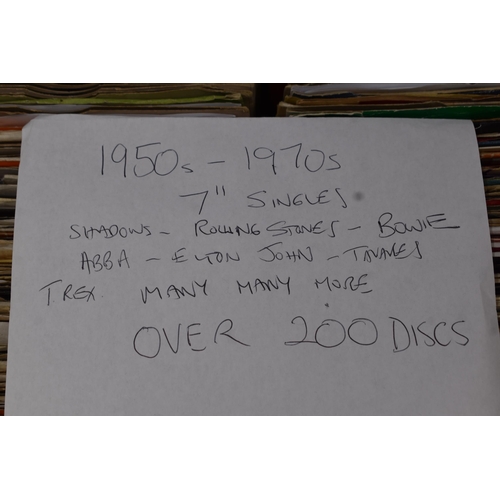 1950s - 1970s
7" SINGLES
SHADOWS - ROLLING STONES - BOWIE
ABBA - ELTON JOHN - TAVARES
T.REX. MANY MANY MORE
OVER 200 DISCS